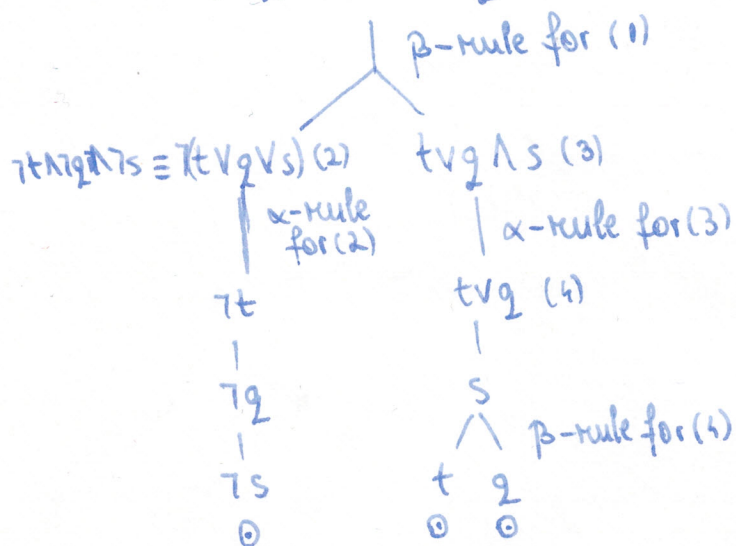 β-rule for (1)
¬t∧¬q∧¬s ≡ ¬(t∨q∨s) (2)
t∨q∧s (3)
α-rule
for (2)
α-rule for (3)
¬t
t∨q (4)
¬q
s
β-rule for (4)
¬s
t q